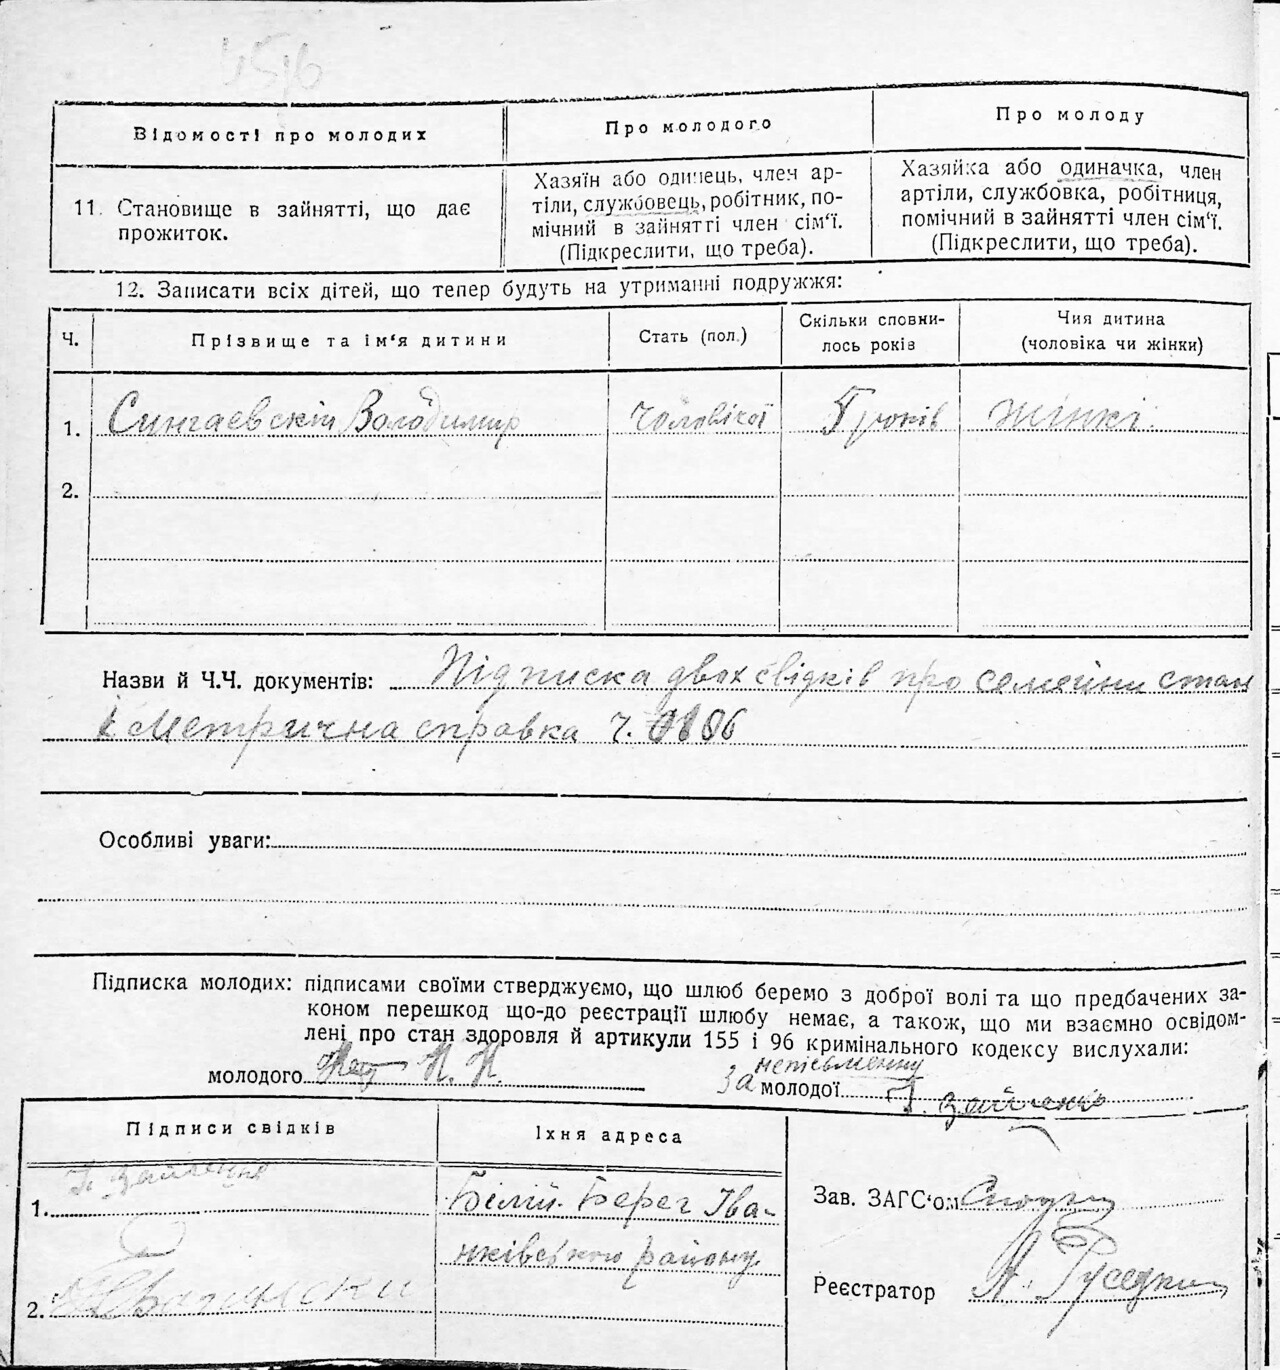 Відомості про молодих
Про молодого
Про молоду
11. Становище в зайнятті, що дає
прожиток.
Хазяїн або одинець, член ар-
тіли, службовець, робітник, по-
мічний в зайнятті член сім‘ї.
(Підкреслити, що треба).
Хазяйка або одиначка, член
артіли, службовка, робітниця,
помічний в зайнятті член сім‘ї.
(Підкреслити, що треба).
12. Записати всіх дітей, що тепер будуть на утриманні подружжя:
Ч.
Прізвище та ім‘я дитини
Стать (пол.)
Скільки сповни-
лось років
Чия дитина
(чоловіка чи жінки)
1. Сингаевскій Володимир чоловічої років жінкі.
2.
Назви й Ч.Ч. документів: Підписка двох свідків про семейни стан
і Метрична справка ч.
Особливі уваги:
Підписка молодих: підписами своїми стверджуємо, що шлюб беремо з доброї волі та що предбачених за-
коном перешкод що-до реєстрації шлюбу немає, а також, що ми взаємно освідом-
лені про стан здоровля й артикули 155 і 96 кримінального кодексу вислухали:
молодого Н. Н.
За непісьменну
молодої
Підписи свідків
Їхня адреса
1.
Білий-Берег Іва-
нківського району
2.
Зав. ЗАГС‘ом
Реєстратор А. Русецкий